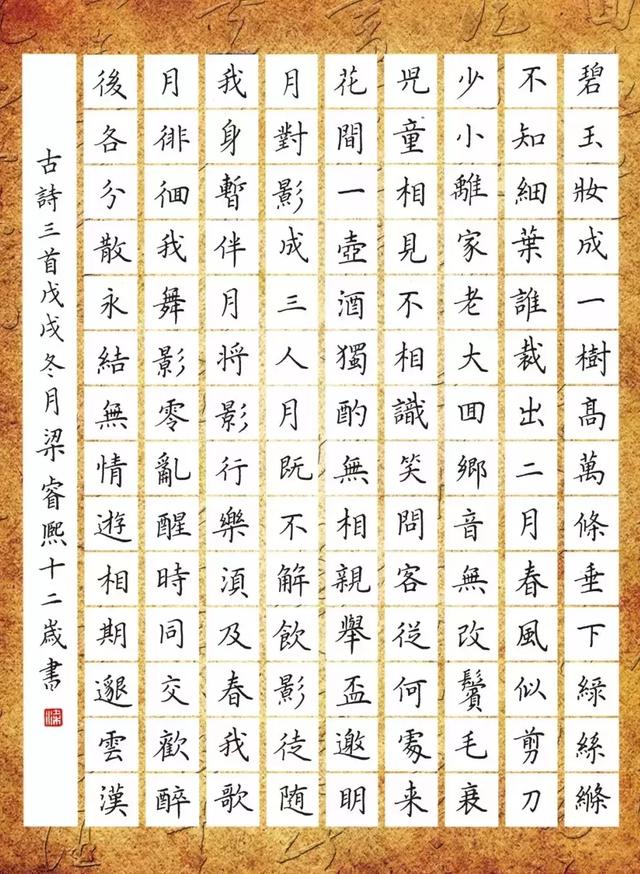 碧玉妝成一樹高萬條垂下綠絲絛
不知細葉誰裁出二月春風似剪刀
少小離家老大回鄉音無改鬢毛衰
兒童相見不相識笑問客從何處来
花間一壺酒獨酌無相親舉盃邀明
月對影成三人月既不解飲影徒随
我身暫伴月将影行樂須及春我歌
月徘徊我舞影零亂醒時同交歡醉
後各分散永結無情遊相期邈雲漢
古詩三首戊戌冬月梁睿熙十二歲書